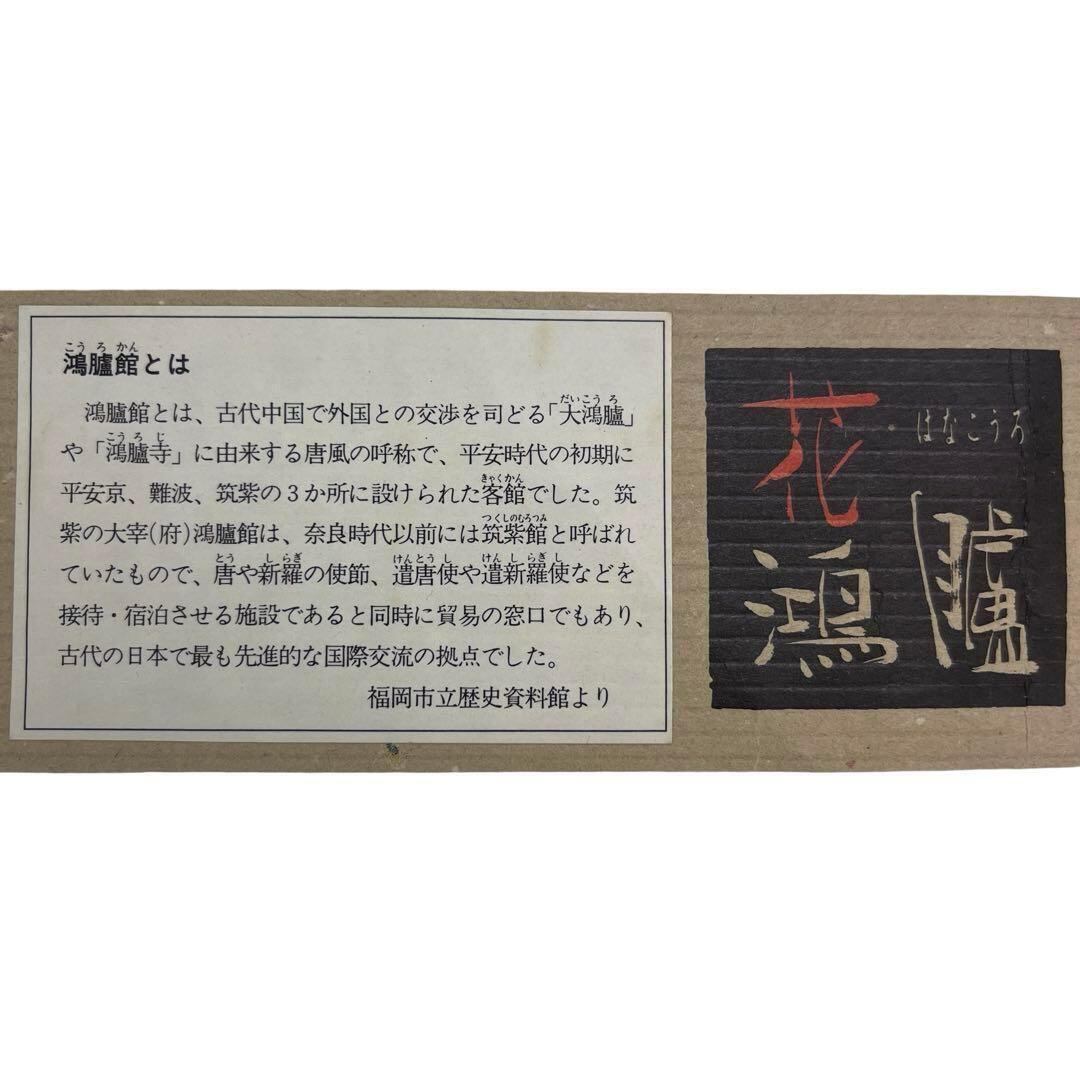 こうろかん
鴻臚館とは
鴻臚館とは、古代中国で外国との交渉を司どる「大鴻臚」
や「鴻臚寺」に由来する唐風の呼称で、平安時代の初期に
平安京、難波、筑紫の3か所に設けられた客館でした。筑
紫の大宰(府)鴻臚館は、奈良時代以前には筑紫館と呼ばれ
ていたもので、唐や新羅の使節、遣唐使や遣新羅使などを
接待・宿泊させる施設であると同時に貿易の窓口でもあり、
古代の日本で最も先進的な国際交流の拠点でした。
福岡市立歴史資料館より
花
鴻
臚
はなこうろ